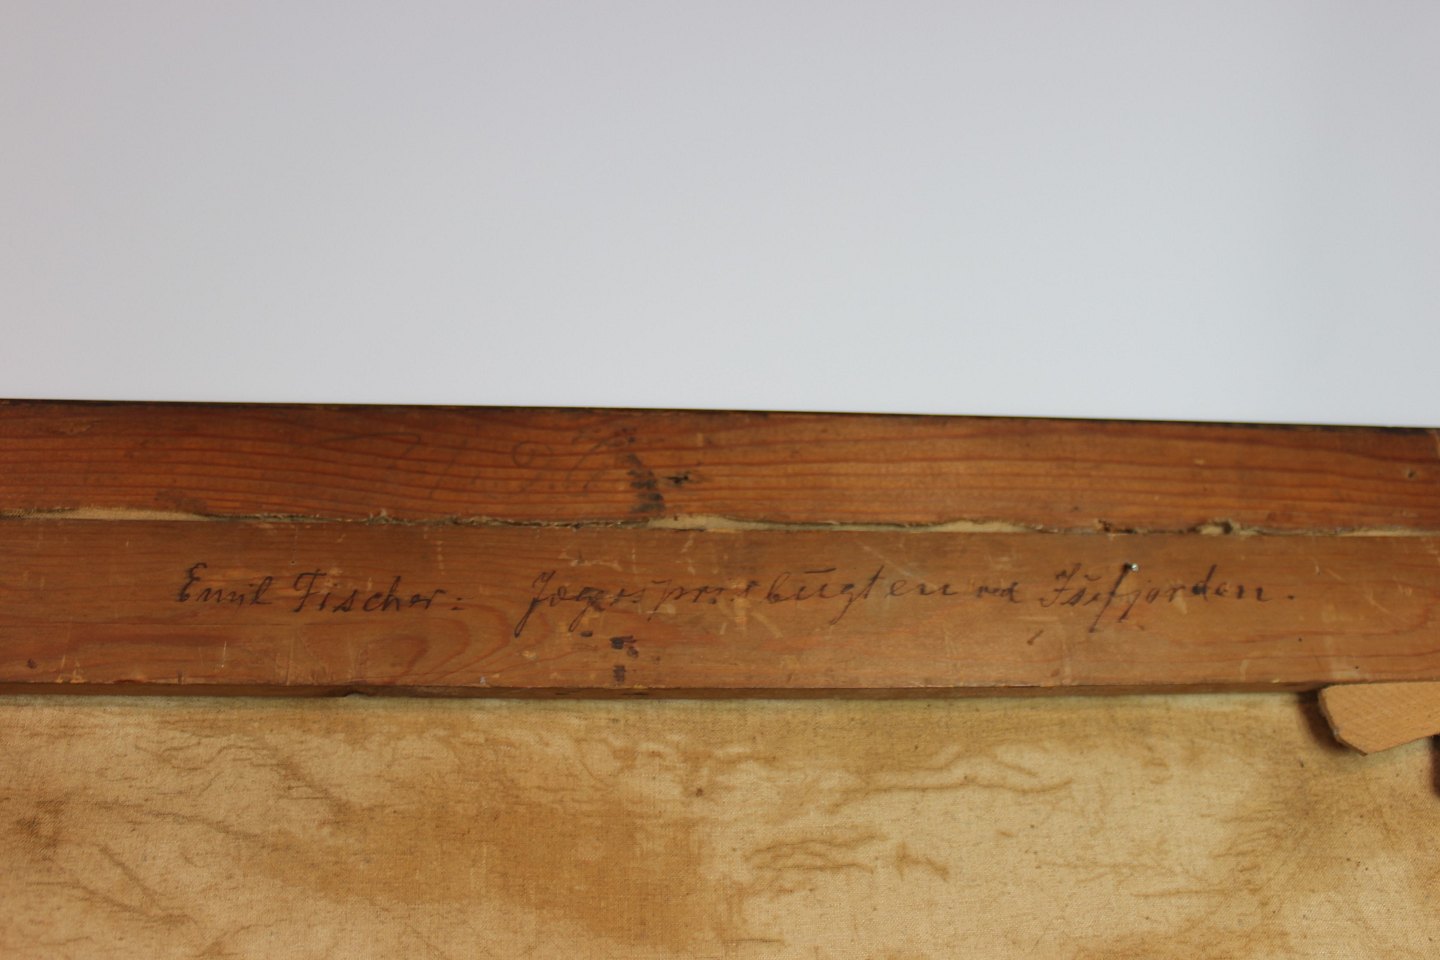 Emil Fischer: Jægersprisbugten ved Isefjorden.